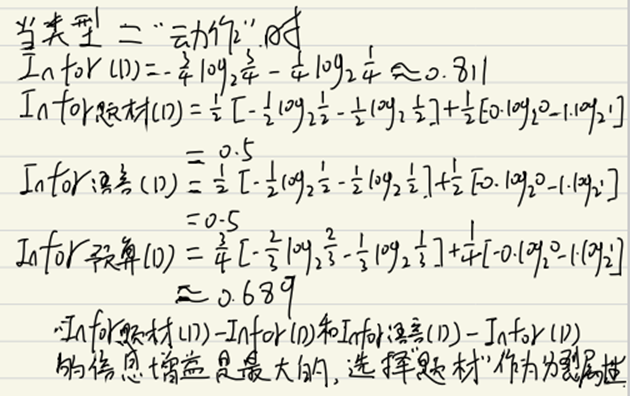 当类型 = "动作" 时
Infor(D) = -3/4 log₂ 3/4 - 1/4 log₂ 1/4 ≈ 0.811
Infor题材(D) = 1/2 [-1/2 log₂ 1/2 - 1/2 log₂ 1/2] + 1/2 [0·log₂0 - 1·log₂1]
= 0.5
Infor语言(D) = 1/2 [-1/2 log₂ 1/2 - 1/2 log₂ 1/2] + 1/2 [0·log₂0 - 1·log₂1]
= 0.5
Infor预算(D) = 3/4 [-2/3 log₂ 2/3 - 1/3 log₂ 1/3] + 1/4 [-0·log₂0 - 1·log₂1]
≈ 0.689
∵Infor题材(D) - Infor(D) 和 Infor语言(D) - Infor(D)
的信息增益是最大的, 选择"题材"作为分裂属性